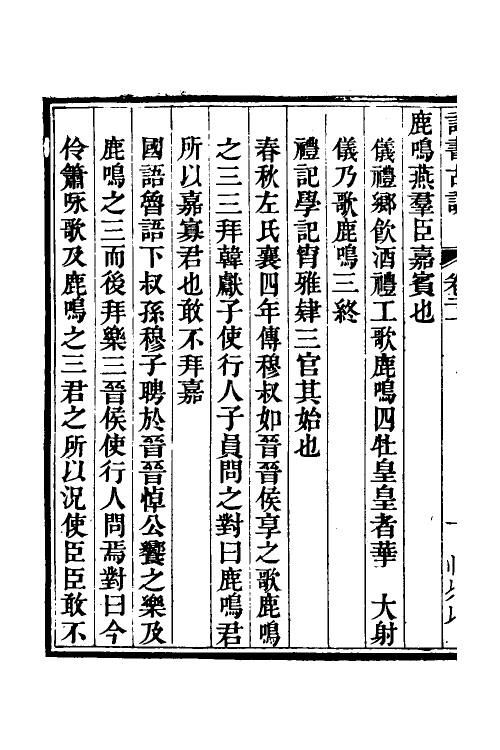 鹿鳴燕羣臣嘉賓也
儀禮鄉飲酒禮工歌鹿鳴四牡皇皇者華　大射
儀乃歌鹿鳴三終
禮記學記宵雅肄三官其始也
春秋左氏襄四年傳穆叔如晉晉侯享之歌鹿鳴
之三三拜韓獻子使行人子員問之對曰鹿鳴君
所以嘉寡君也敢不拜嘉
國語魯語下叔孫穆子聘於晉晉悼公饗之樂及
鹿鳴之三而後拜樂三晉侯使行人問焉對曰今
伶簫咏歌及鹿鳴之三君之所以況使臣臣敢不